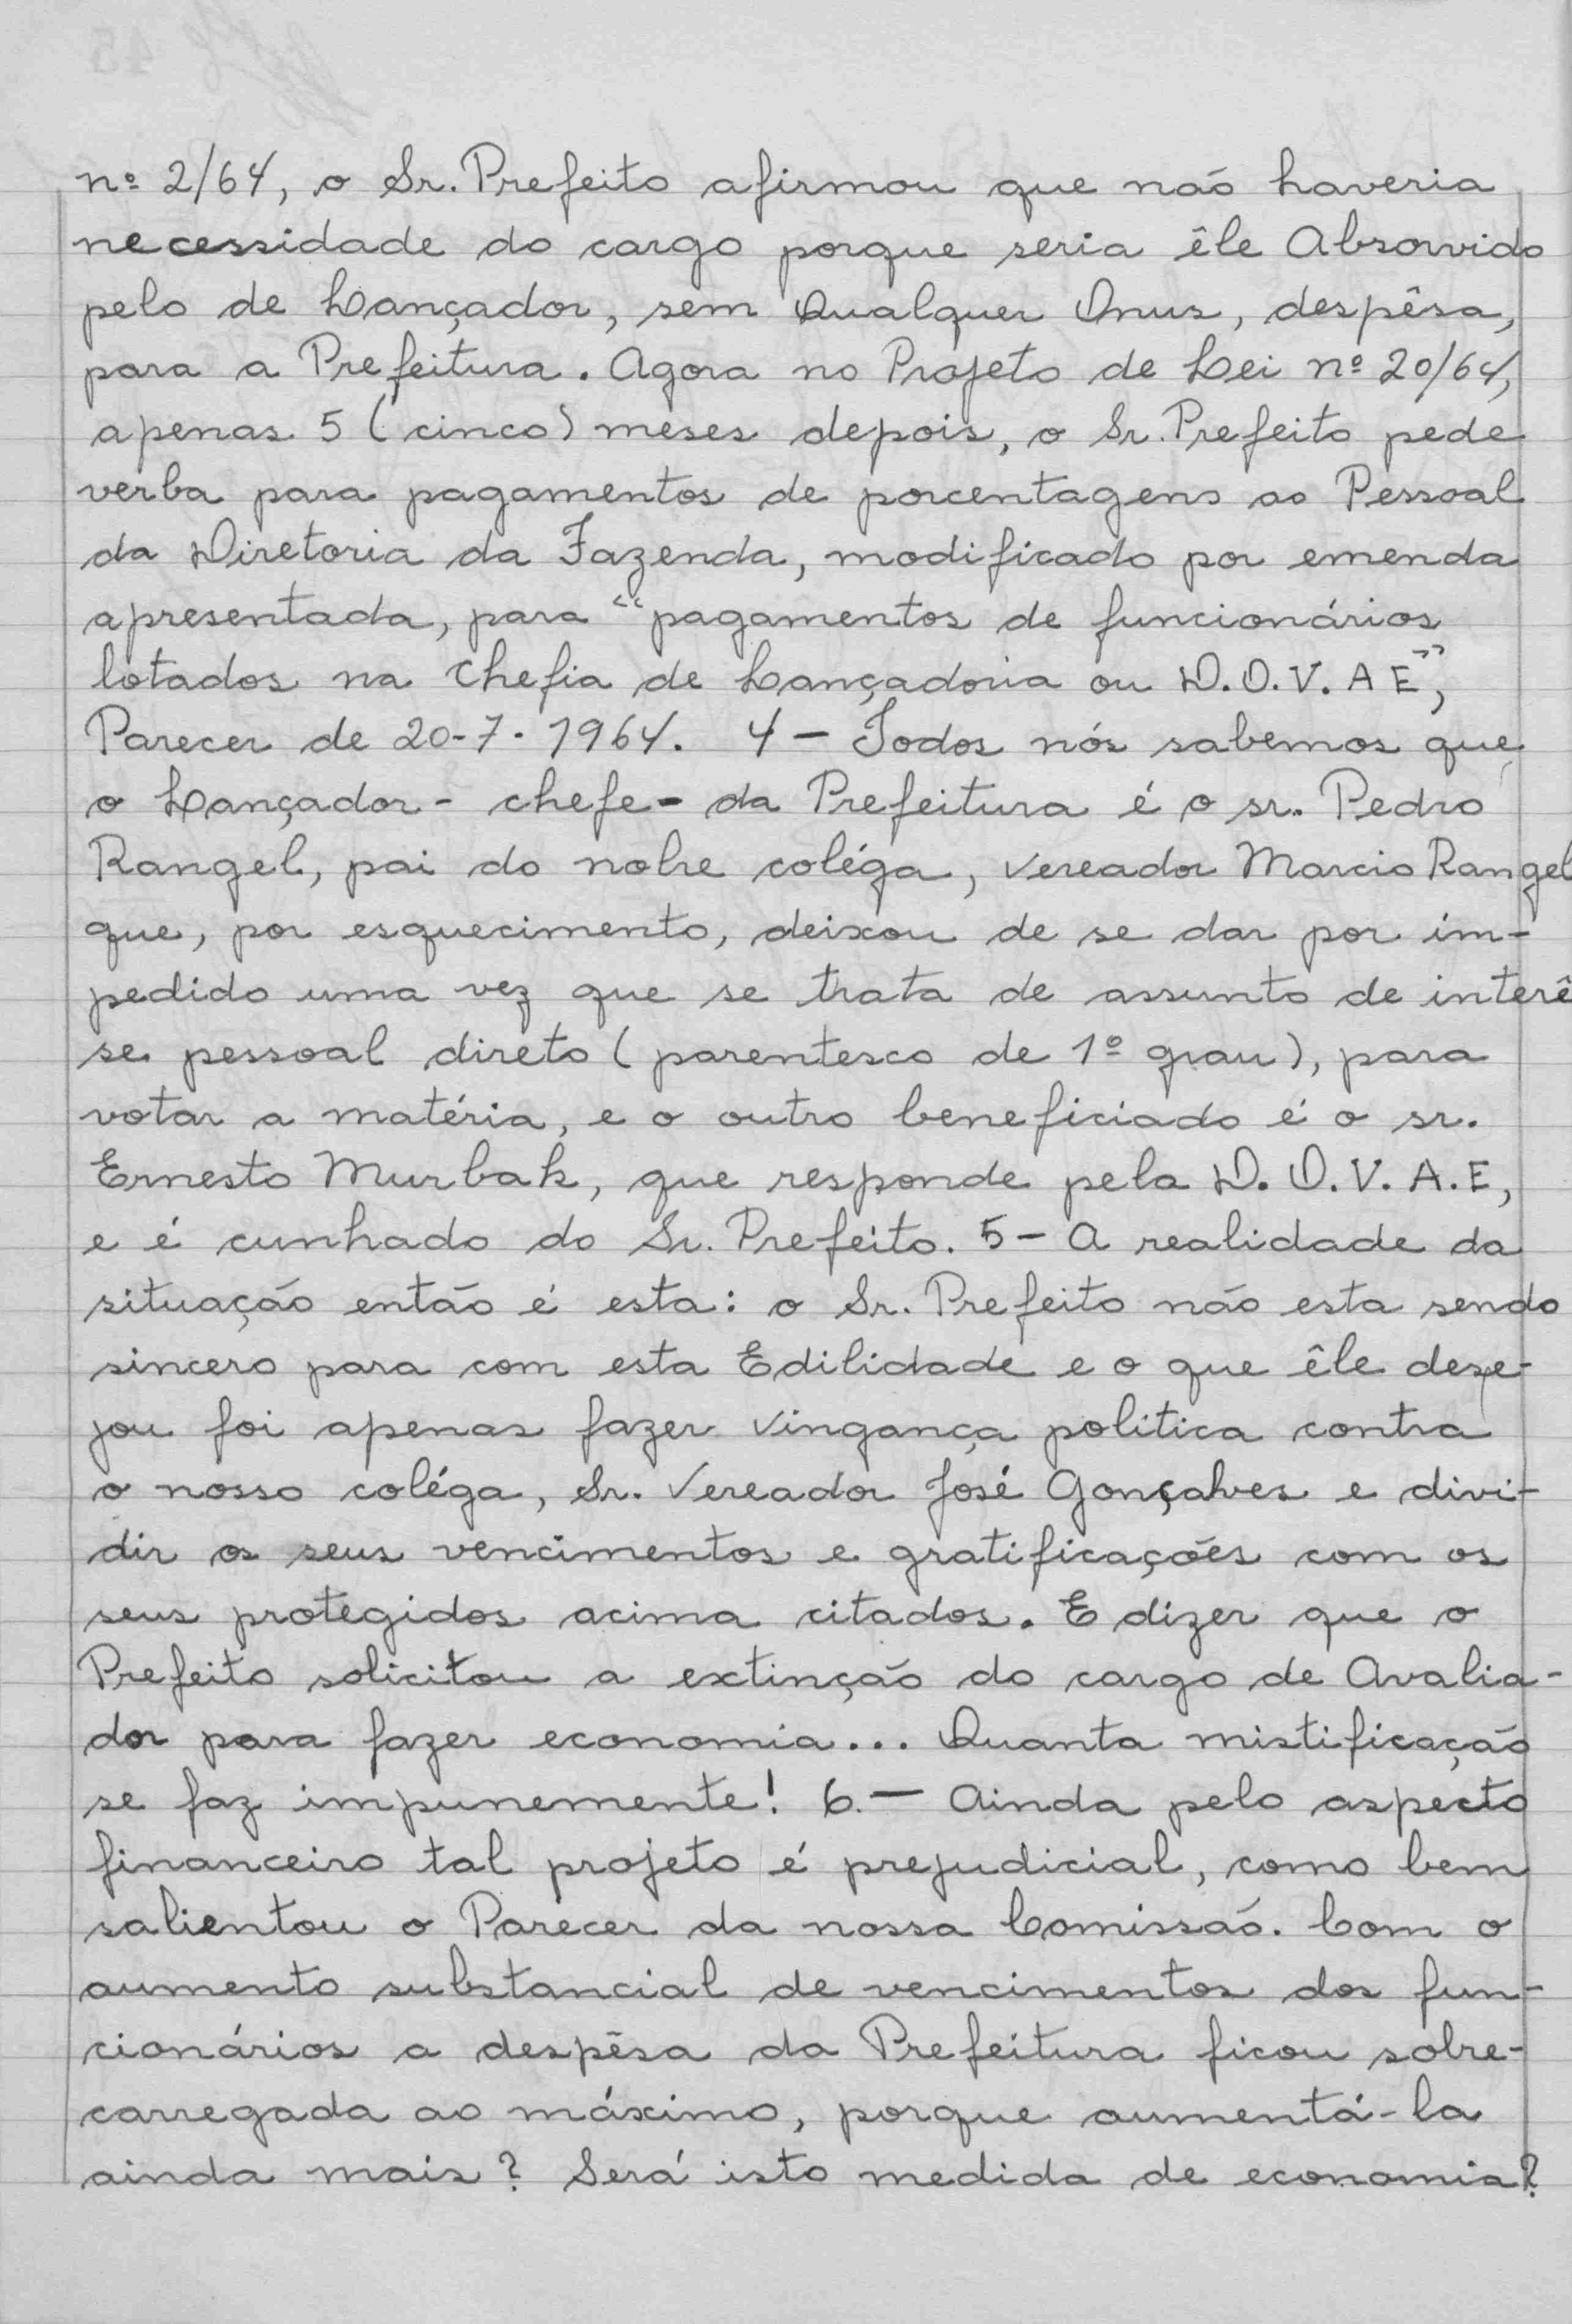 nº 2/64, o Sr. Prefeito afirmou que não haveria
necessidade do cargo porque seria êle Absorvido
pelo de Lançador, sem Qualquer Onus, despêsa,
para a Prefeitura. Agora no Projeto de Lei nº 20/64,
apenas 5 (cinco) meses depois, o Sr. Prefeito pede
verba para pagamentos de porcentagens ao Pessoal
da Diretoria da Fazenda, modificado por emenda
apresentada, para "pagamentos de funcionários
lotados na Chefia de Lançadoria ou D.O.V.A E",
Parecer de 20-7-1964. 4 - Todos nós sabemos que
o Lançador - chefe - da Prefeitura é o sr. Pedro
Rangel, pai do nobre coléga, Vereador Marcio Rangel
que, por esquecimento, deixou de se dar por im-
pedido uma vez que se trata de assunto de interê
se pessoal direto (parentesco de 1º grau), para
votar a matéria, e o outro beneficiado é o sr.
Ernesto Murbak, que responde pela D.O.V.A.E,
e é cunhado do Sr. Prefeito. 5 - A realidade da
situação então é esta: o Sr. Prefeito não esta sendo
sincero para com esta Edilidade e o que êle dese-
jou foi apenas fazer vingança politica contra
o nosso coléga, Sr. Vereador José Gonçalves e divi-
dir os seus vencimentos e gratificações com os
seus protegidos acima citados. E dizer que o
Prefeito solicitou a extinção do cargo de Avalia-
dor para fazer economia... Quanta mistificação
se faz impunemente! 6. - Ainda pelo aspecto
financeiro tal projeto é prejudicial, como bem
salientou o Parecer da nossa Comissão. Com o
aumento substancial de vencimentos dos fun-
cionários a despêsa da Prefeitura ficou sobre-
carregada ao máximo, porque aumentá-la
ainda mais? Será isto medida de economia?